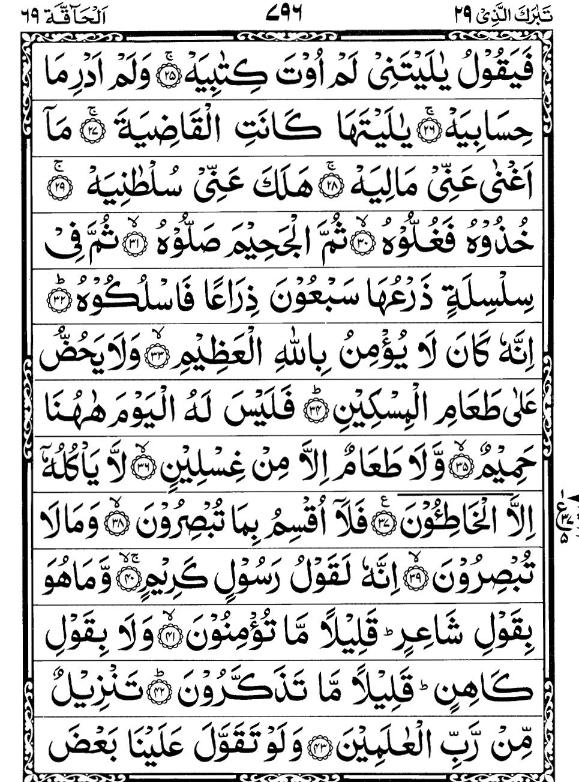 تَبٰرَكَ الَّذِىْ ٢٩ ٧٩٦ اَلْحَآقَّة ٦٩
فَيَقُوْلُ يٰلَيْتَنِىْ لَمْ اُوْتَ كِتٰبِيَهْ ۚ‏﴿٢٥﴾ وَلَمْ اَدْرِ مَا
حِسَابِيَهْ ۚ‏﴿٢٦﴾ يٰلَيْتَهَا كَانَتِ الْقَاضِيَةَ ۚ‏﴿٢٧﴾ مَاۤ
اَغْنٰى عَنِّىْ مَالِيَهْ ۚ‏﴿٢٨﴾ هَلَكَ عَنِّىْ سُلْطٰنِيَهْ ۚ‏﴿٢٩﴾
خُذُوْهُ فَغُلُّوْهُ ۙ‏﴿٣٠﴾ ثُمَّ الْجَحِيْمَ صَلُّوْهُ ۙ‏﴿٣١﴾ ثُمَّ فِىْ
سِلْسِلَةٍ ذَرْعُهَا سَبْعُوْنَ ذِرَاعًا فَاسْلُكُوْهُ ؕ‏﴿٣٢﴾
اِنَّهٗ كَانَ لَا يُؤْمِنُ بِاللّٰهِ الْعَظِيْمِ ۙ‏﴿٣٣﴾ وَلَا يَحُضُّ
عَلٰى طَعَامِ الْمِسْكِيْنِ ؕ‏﴿٣٤﴾ فَلَيْسَ لَهُ الْيَوْمَ هٰهُنَا
حَمِيْمٌ ۙ‏﴿٣٥﴾ وَّلَا طَعَامٌ اِلَّا مِنْ غِسْلِيْنٍ ۙ‏﴿٣٦﴾ لَّا يَاْكُلُهٗۤ
اِلَّا الْخَاطِئُوْنَ ‏﴿٣٧﴾ ع فَلَاۤ اُقْسِمُ بِمَا تُبْصِرُوْنَ ۙ‏﴿٣٨﴾ وَمَا لَا
تُبْصِرُوْنَ ۙ‏﴿٣٩﴾ اِنَّهٗ لَقَوْلُ رَسُوْلٍ كَرِيْمٍ ۚۙ‏﴿٤٠﴾ وَّمَا هُوَ
بِقَوْلِ شَاعِرٍ ؕ قَلِيْلًا مَّا تُؤْمِنُوْنَ ۙ‏﴿٤١﴾ وَلَا بِقَوْلِ
كَاهِنٍ ؕ قَلِيْلًا مَّا تَذَكَّرُوْنَ ؕ‏﴿٤٢﴾ تَنْزِيْلٌ
مِّنْ رَّبِّ الْعٰلَمِيْنَ ‏﴿٤٣﴾ وَلَوْ تَقَوَّلَ عَلَيْنَا بَعْضَ